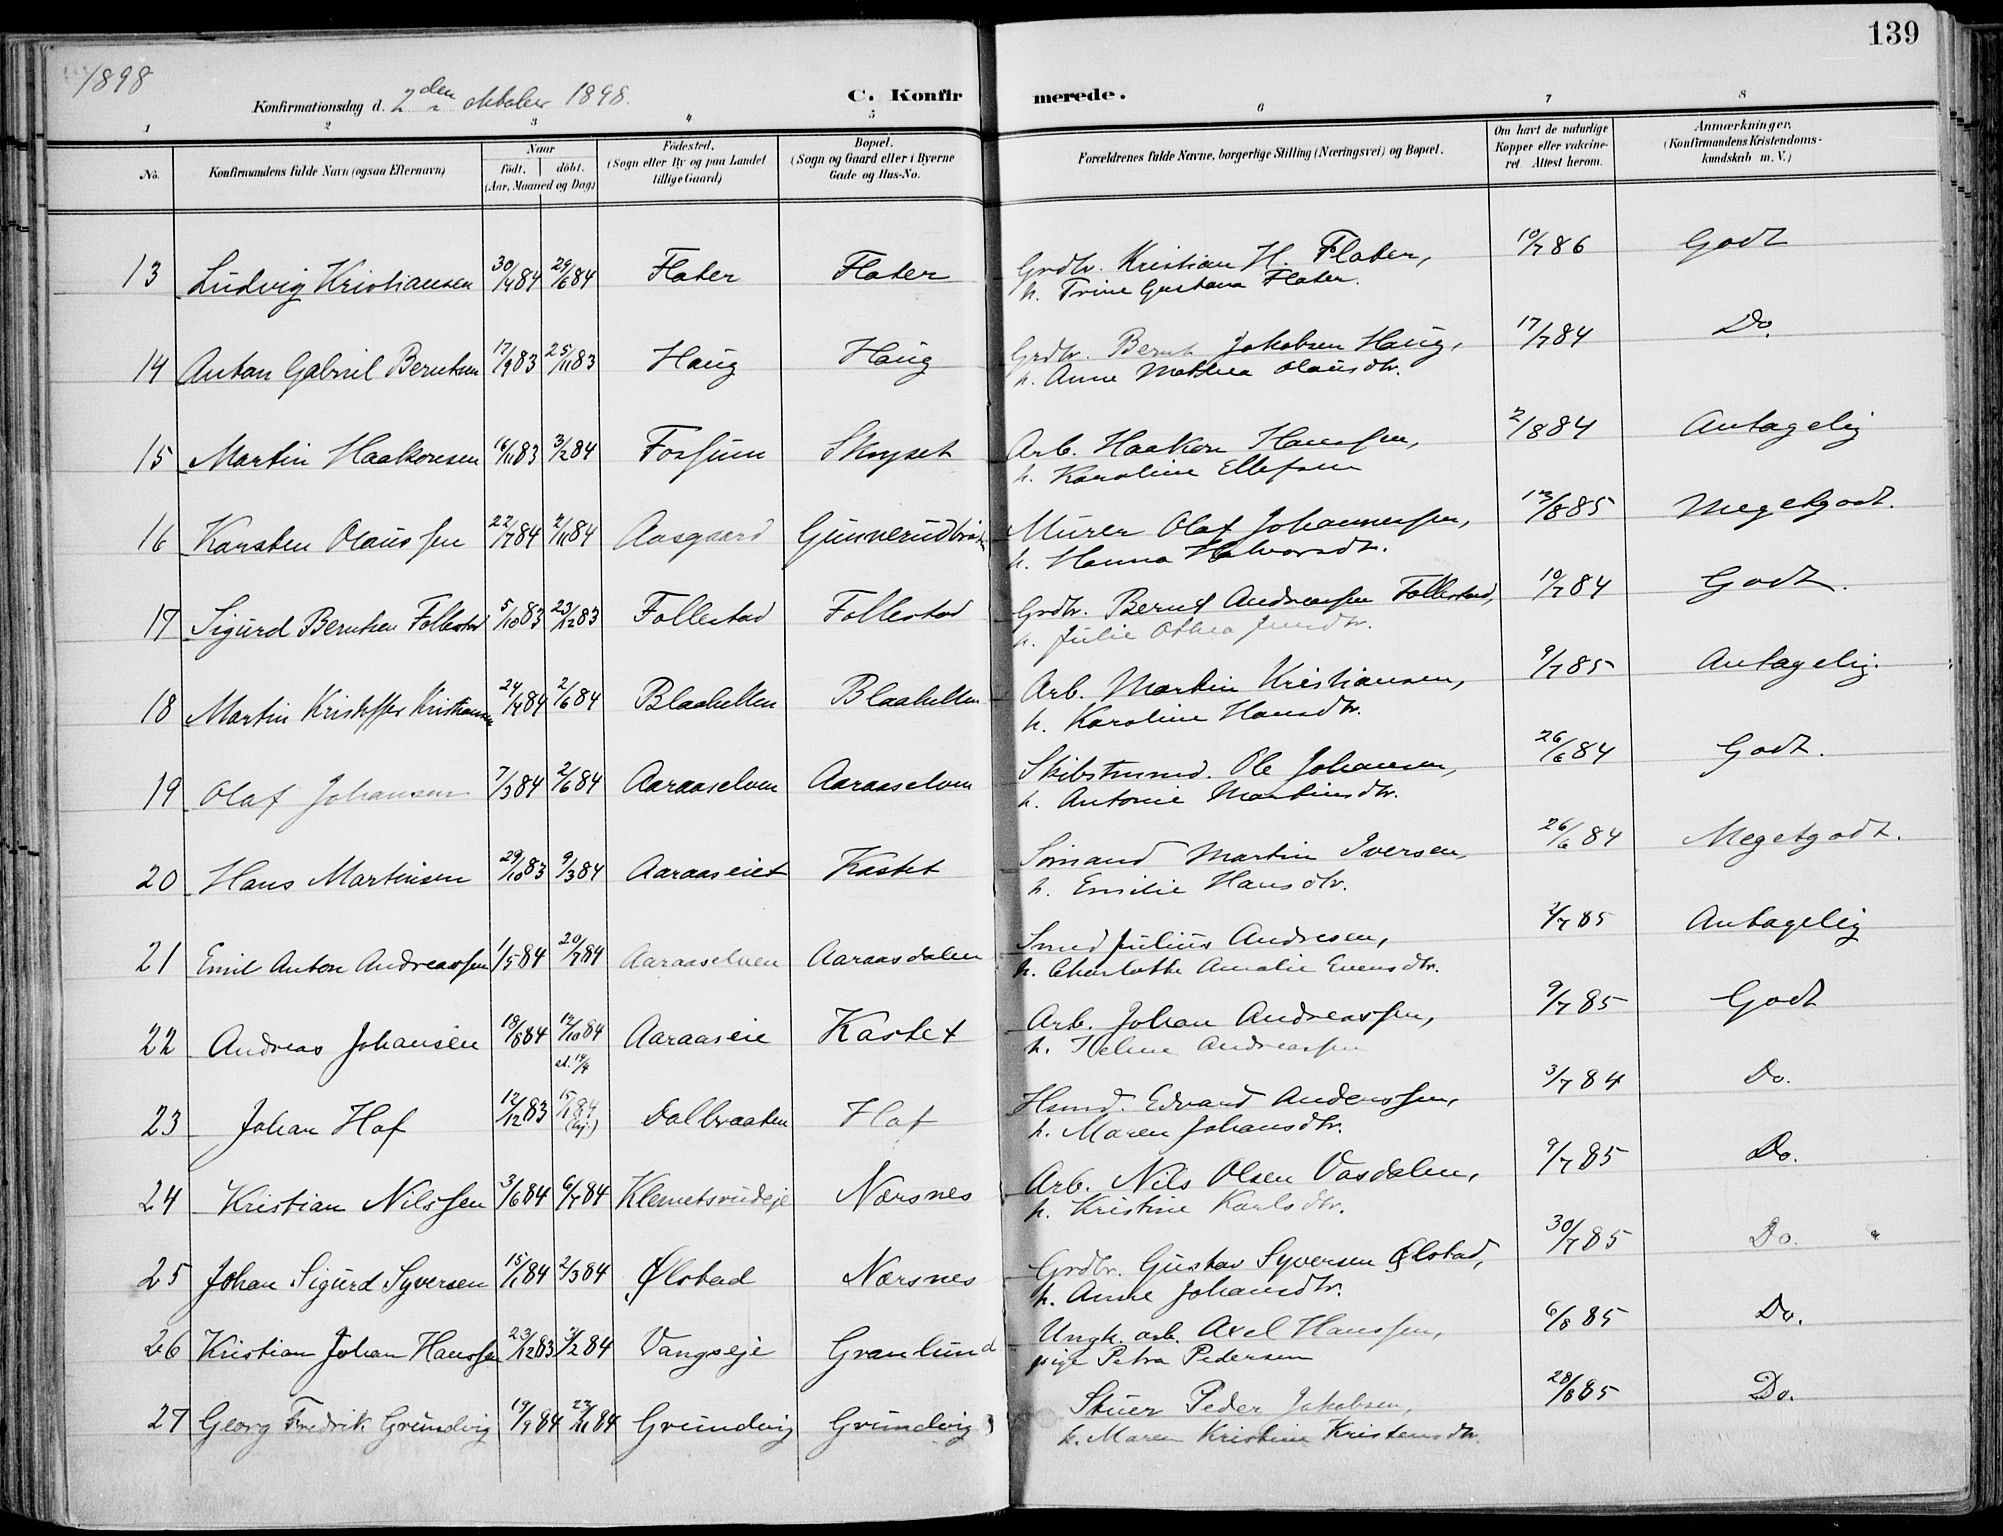 139
1898
Konfirmationsdag d. 2den oktober 1898.
C. Konfirmerede.
1 2 3 4 5 6 7 8
No.
Konfirmandens fulde Navn (ogsaa Efternavn)
Naar
födt. döbt.
(Aar, Maaned og Dag)
Födested.
(Sogn eller By og paa Landet
tillige Gaard)
Bopæl.
(Sogn og Gaard eller i Byerne
Gade og Hus-No.
Forældrenes fulde Navne, borgerlige Stilling (Næringsvei) og Bopæl.
Om havt de naturlige
Kopper eller vakcine-
ret. Attest herom.
Anmærkninger.
(Konfirmandens Kristendoms-
kundskab m. V.)
13 Ludvig Kristiansen 30/4 84 29/6 84 Flater Flater Grdbr. Kristian H. Flater, 10/7 86 Godt
h. Trine Gustava Flater.
14 Anton Gabriel Berntsen 17/9 83 25/11 83 Haug Haug Grdbr. Bernt Jakobsen Haug, 17/7 84 Do.
h. Anne Mathea Olausdtr.
15 Martin Haakonsen 16/11 83 3/2 84 Fossum Skryset Arb. Haakon Hanssen, 2/8 84 Antagelig
h. Karoline Ellefsen
16 Karsten Olaussen 22/7 84 2/11 84 Aasgaard Murer Olaf Johannessen, 13/8 85 Megetgodt.
h. Hanna Halvorsdtr.
17 Sigurd Berntsen Follestad 5/10 83 23/12 83 Follestad Follestad Grdbr. Bernt Andreassen Follestad, 10/7 84 Godt.
h. Julie Othea Jensdtr.
18 Martin Kristoffer Kristiansen 24/4 84 2/6 84 Blaahellen Blaahellen Arb. Martin Kristiansen, 9/7 85 Antagelig.
h. Karoline Hansdtr.
19 Olaf Johansen 7/3 84 2/6 84 Aaraaselven Aaraaselven Skibstmmd. Ole Johansen, 26/6 84 Godt.
h. Antonie Martinsdtr.
20 Hans Martinsen 29/10 83 9/3 84 Aaraaseiet Kastet Sømand Martin Iversen, 26/6 84 Megetgodt.
h. Emilie Hansdtr.
21 Emil Anton Andreassen 1/5 84 20/7 84 Aaraaselven Aaraasdalen Smed Julius Andresen, 2/7 85 Antagelig
h. Charlotte Amalie Evensdtr.
22 Andreas Johansen 18/8 84 12/10 84 Aaraaseie Kastet Arb. Johan Andreassen, 9/7 85 Godt
h. Helene Andreassen
23 Johan Hof 12/12 83 15/1 84 Dalbraaten Hof Hsmd. Edvard Anderssen, 3/7 84 Do.
(hj.) h. Maren Johansdtr.
24 Kristian Nilssen 3/6 84 6/7 84 Klemetsrudeje Nærsnes Arb. Nils Olsen Vasdalen, 9/7 85 Do.
h. Kristine Karlsdtr.
25 Johan Sigurd Syversen 15/1 84 2/3 84 Ølstad Nærsnes Grdbr. Gustav Syversen Ølstad, 30/7 85 Do.
h. Anne Johansdtr.
26 Kristian Johan Hanssen 23/12 83 3/2 84 Vangseje Granlund Ungk. arb. Axel Hanssen, 6/8 85 Do.
pige Petra Pedersen
27 Georg Fredrik Grundvig 19/9 84 23/11 84 Grundvig Grundvig Stuer Peder Jakobsen, 28/8 85 Do.
h. Maren Kristine Kristensdtr.